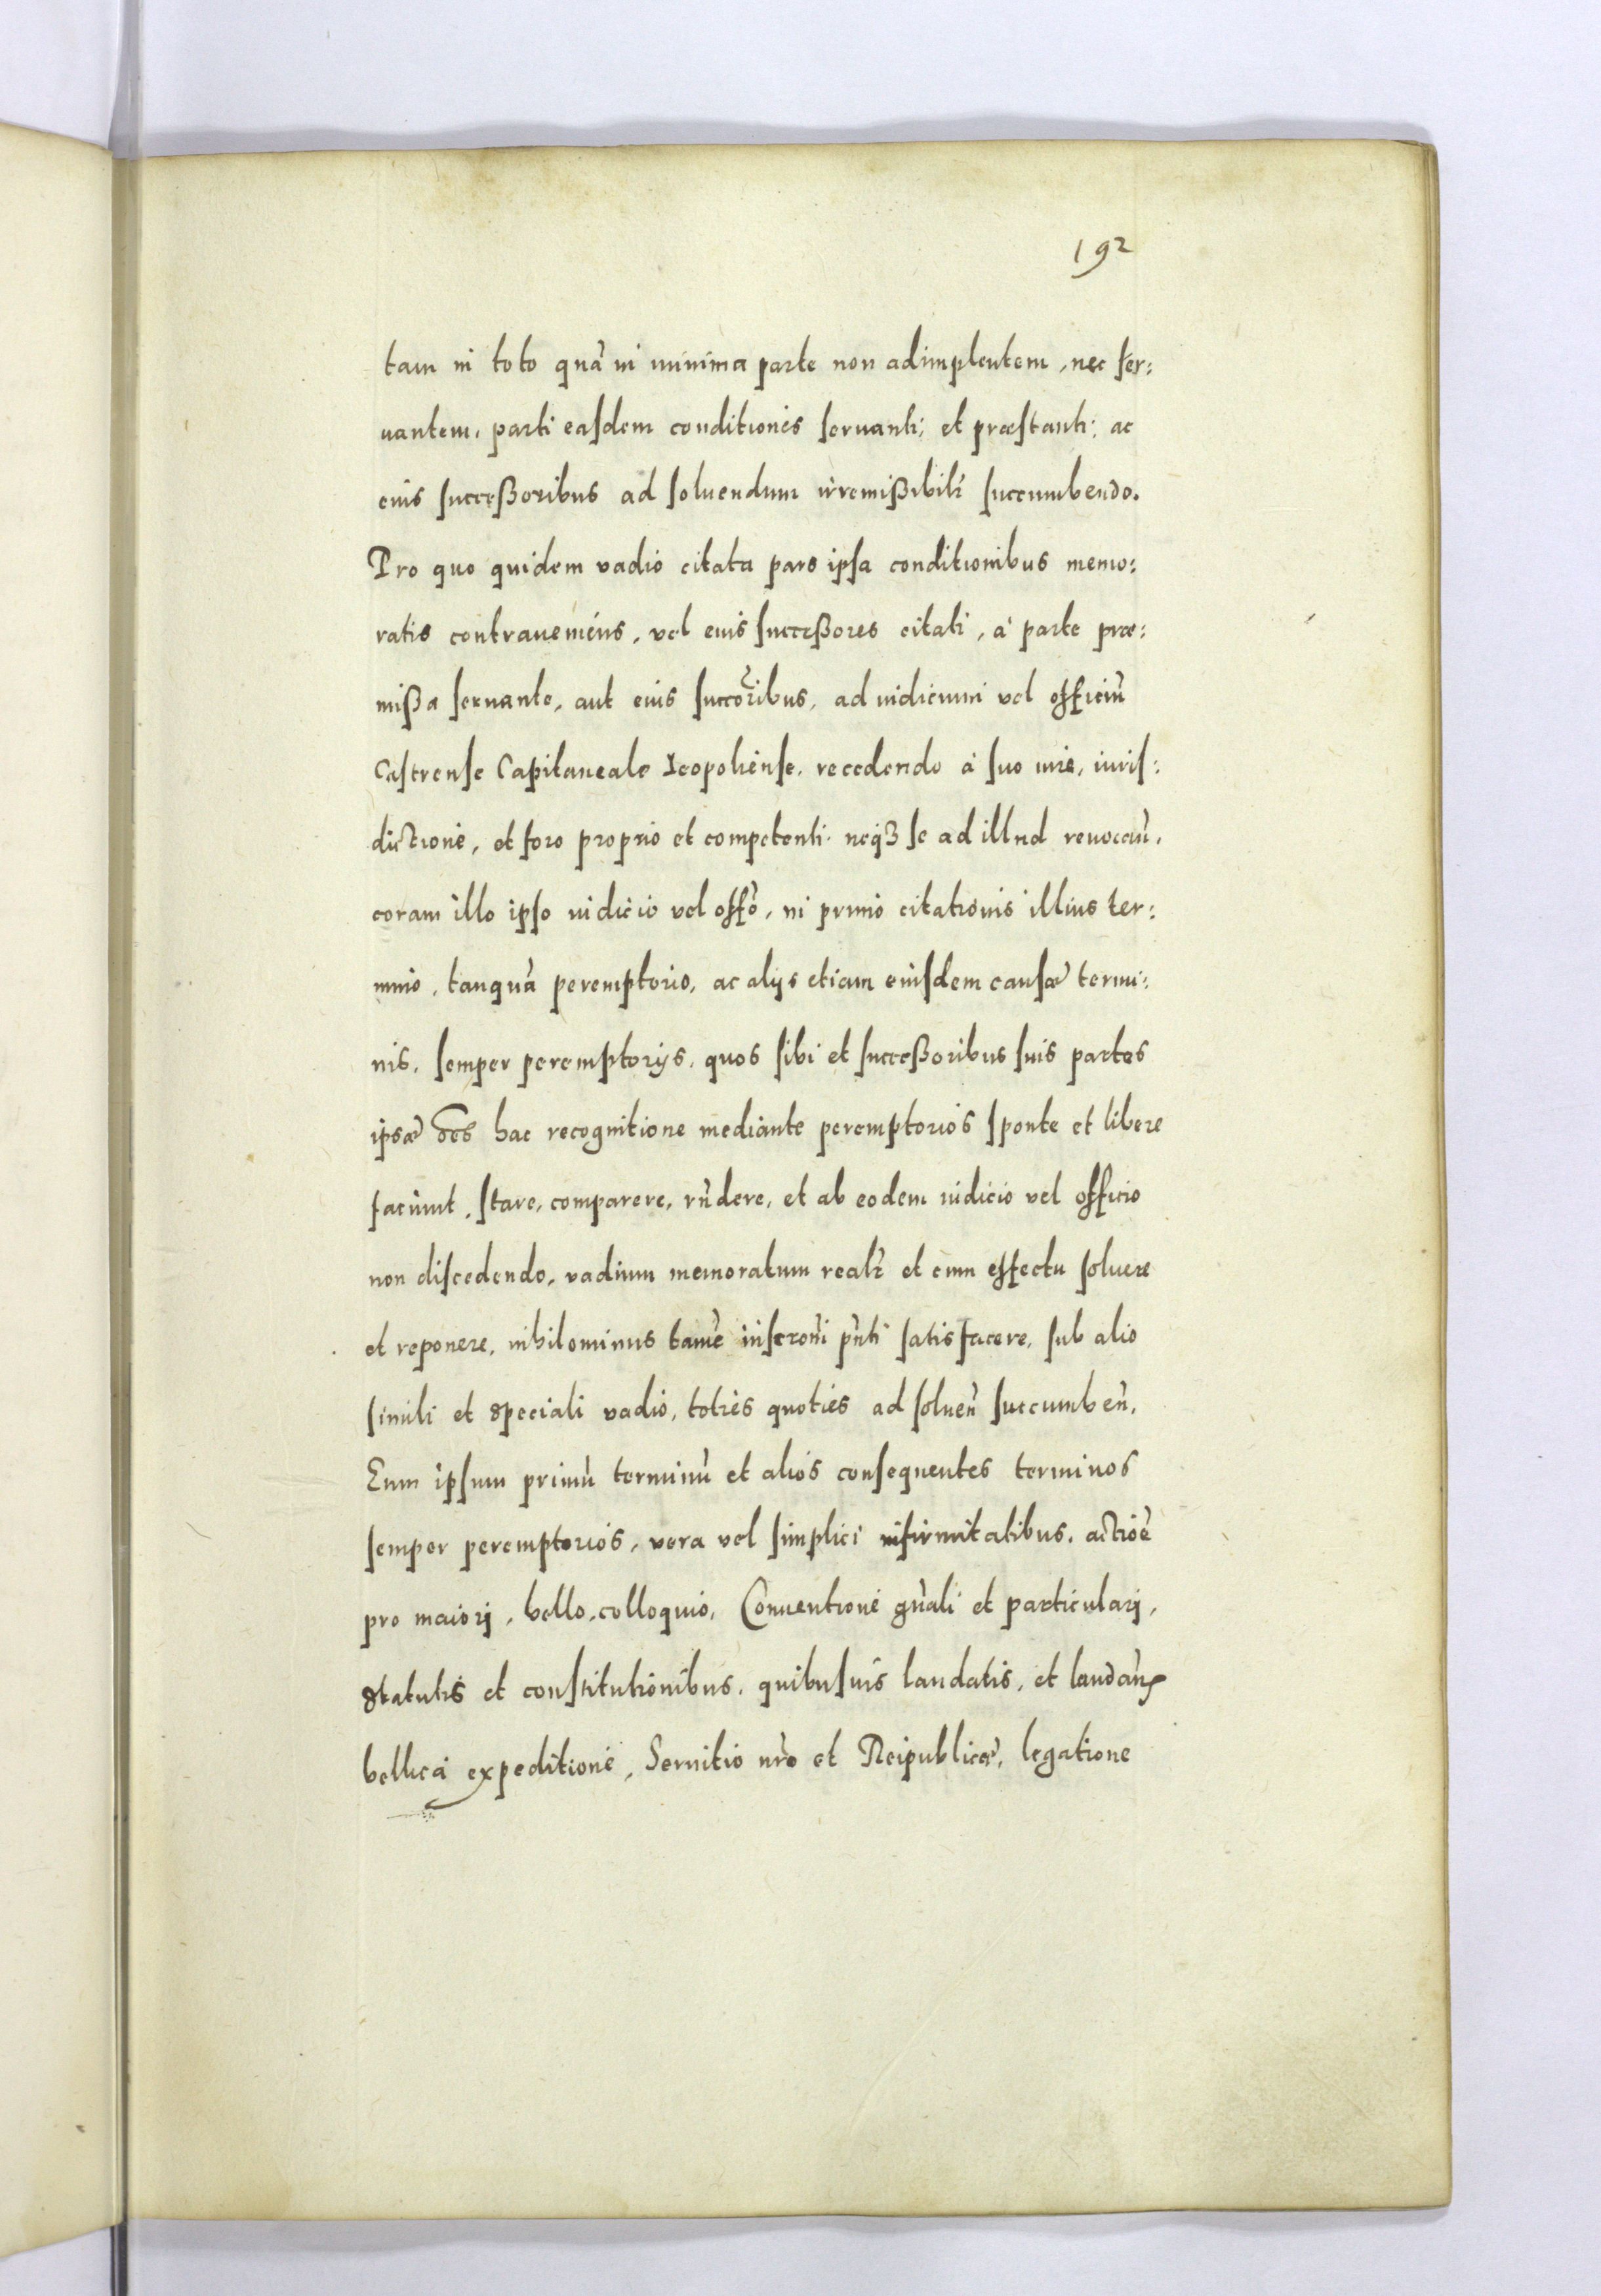 192
tam in toto quā in minima parte non adimplentem, nec ser:
uantem, parti easdem conditiones seruanti, et præstanti, ac
eius succeßoribus ad soluendum irremißibilr succumbendo.
Pro quo quidem vadio citata pars ipsa conditionibus memo:
ratis contraueniens, vel eius succeßores citati, à parte præ:
mißa seruante, aut eius succoribus, ad iudicium vel officiū
Castrense Capitaneale Leopoliense, recedendo à suo iure, iuris:
dictione, et foro proprio et competenti, neqꝫ se ad illud reuocaň,
coram illo ipso iudicio vel offō, in primo citationis illius ter:
mino, tanquā peremptorio, ac alijs etiam eiusdem causæ termi:
nis, semper peremptorijs, quos sibi et succeßoribus suis partes
ipsæ oēs hac recognitione mediante peremptorios sponte et libere
faciunt, stare, comparere, rn̄dere, et ab eodem iudicio vel officio
non discedendo, vadium memoratum realr et cum effectu soluere
et reponere, nihilominus tamē inscrōni pn̄ti satisfacere, sub alio
simili et speciali vadio, toties quoties ad solueň succumbeň,
Eum ipsum primū terminū et alios consequentes terminos
semper peremptorios, vera vel simplici infirmitatibus, actiōē
pro maiori, bello, colloquio, Conuentione gn̄ali et particulari,
statutis et constitutionibus, quibusuis laudatis, et laudaň,
bellica expeditione, Seruitio nr̄o et Reipublicæ, legatione